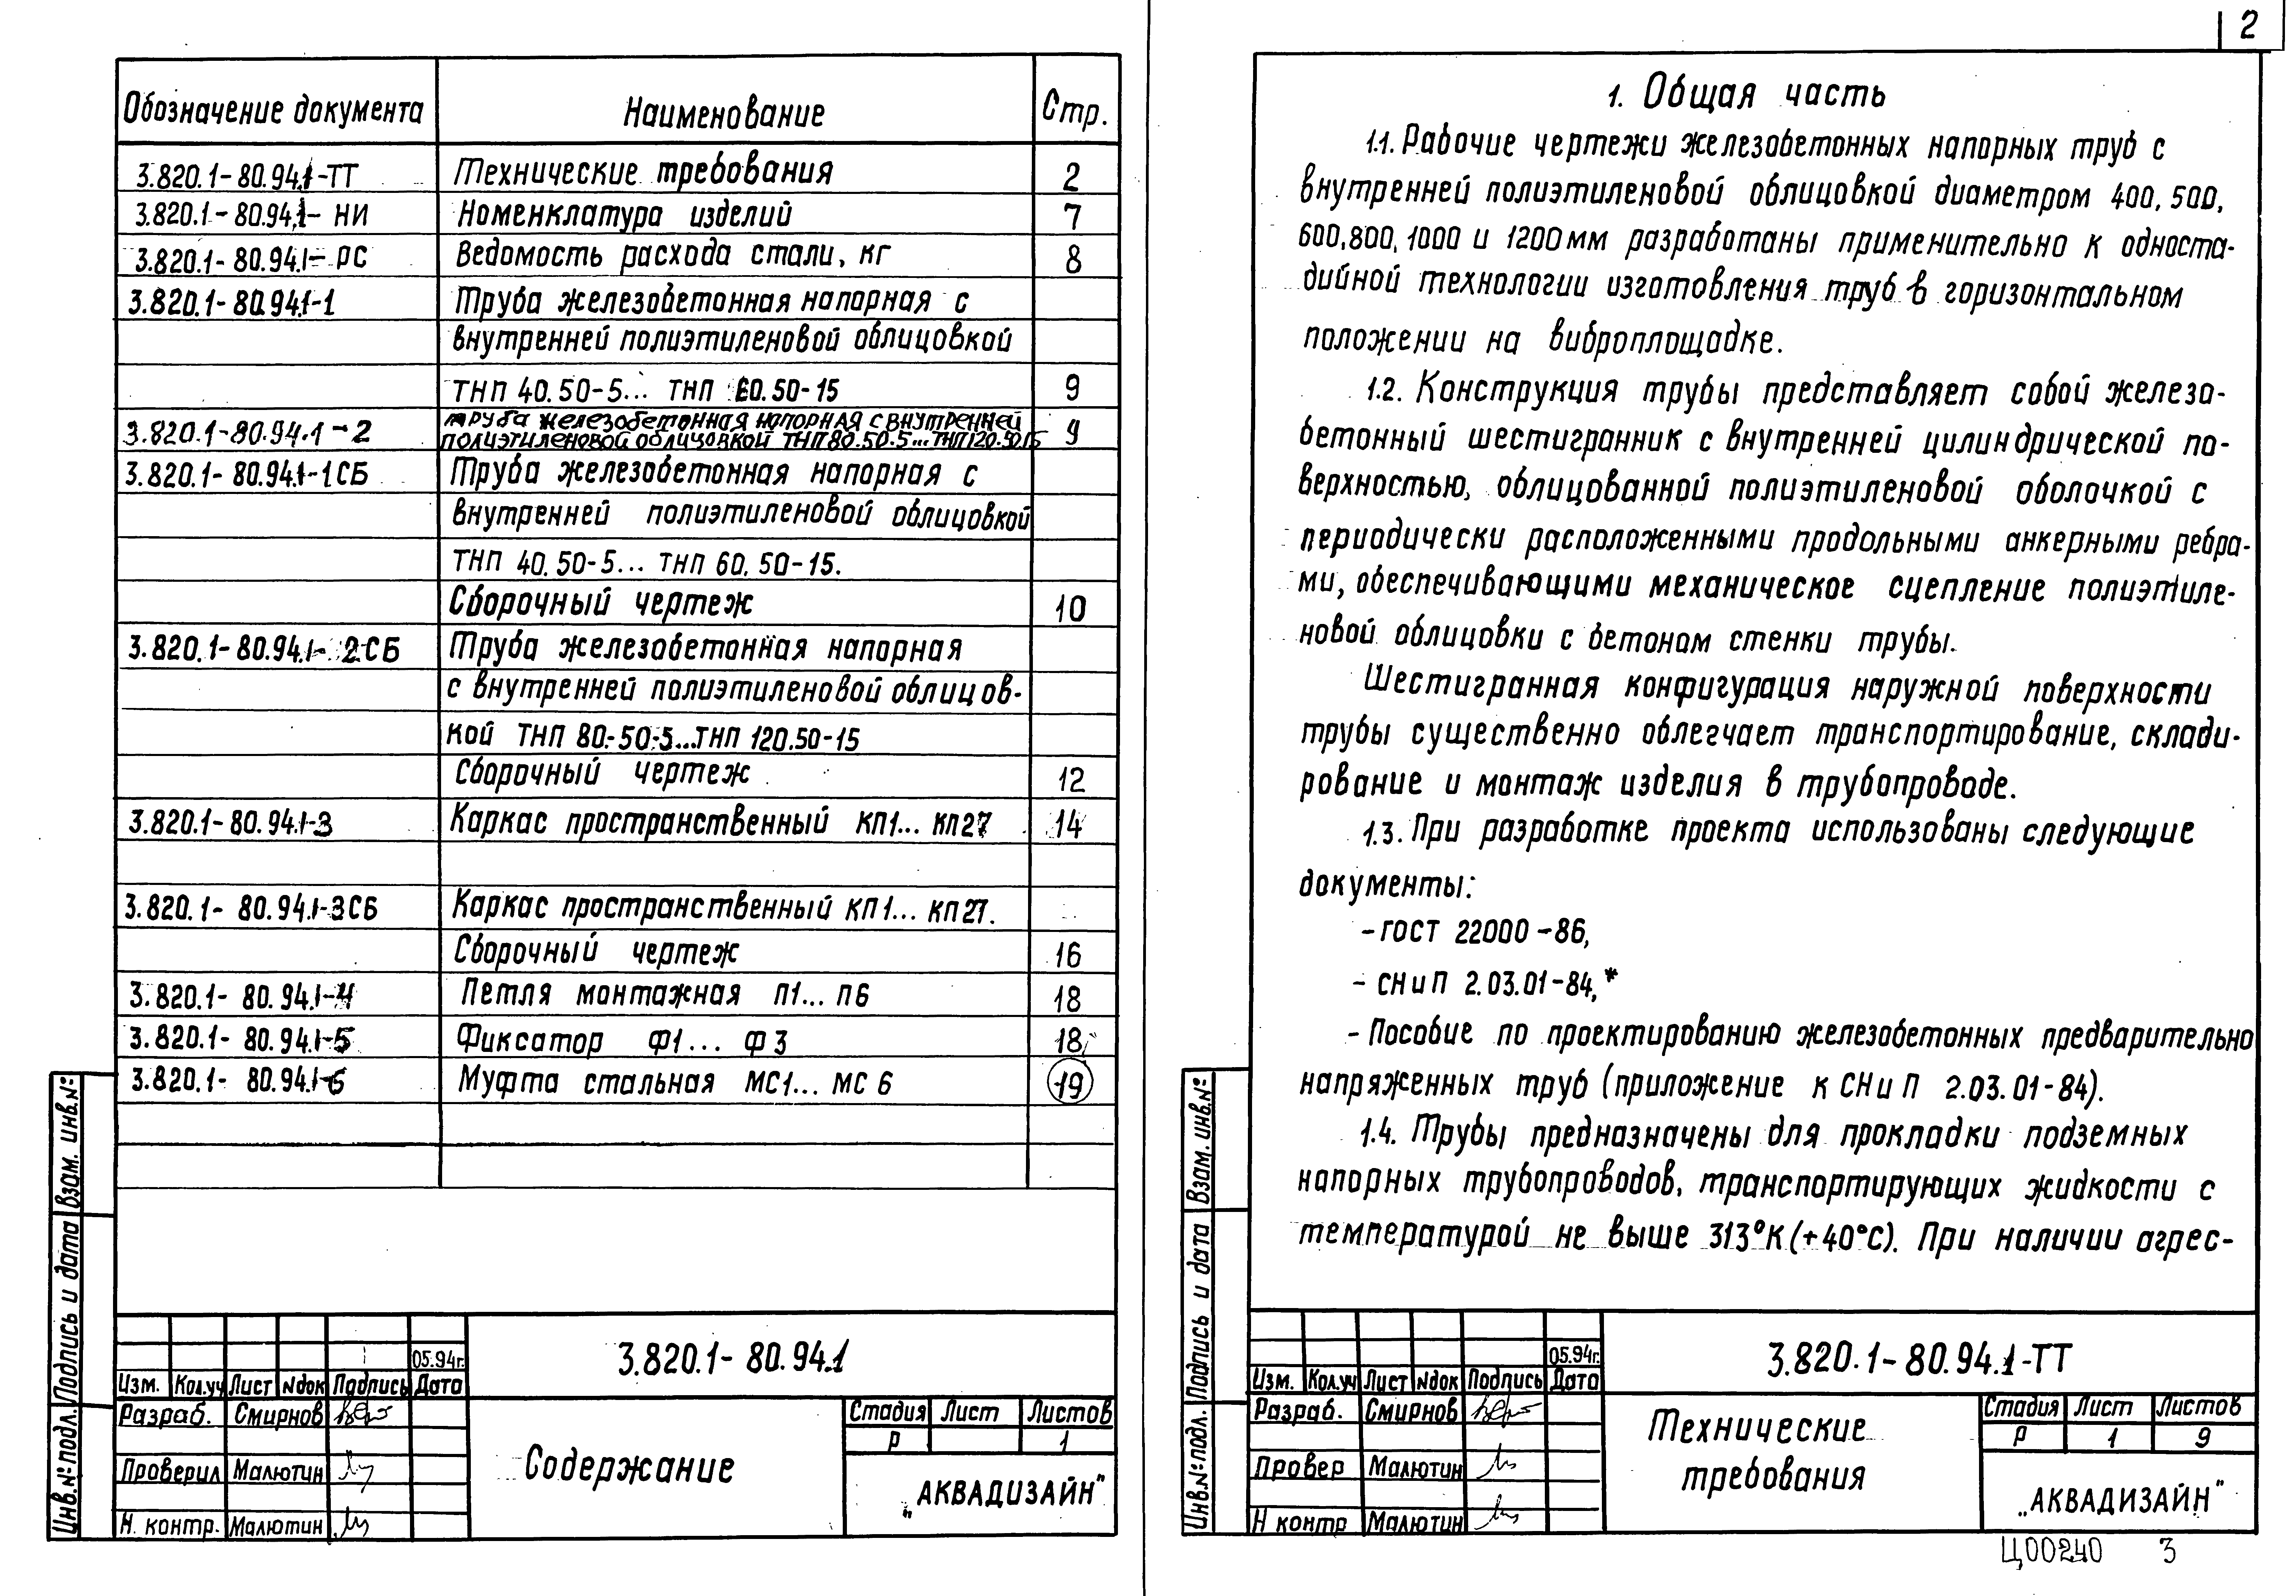 2
Обозначение документа Наименование Стр.
3.820.1-80.94.1-ТТ Технические требования 2
3.820.1-80.94.1-НИ Номенклатура изделий 7
3.820.1-80.94.1-РС Ведомость расхода стали, кг 8
3.820.1-80.94.1-1 Труба железобетонная напорная с
внутренней полиэтиленовой облицовкой
ТНП 40.50-5... ТНП 60.50-15 9
3.820.1-80.94.1-2 Труба железобетонная напорная с внутренней
полиэтиленовой облицовкой ТНП 80.50-5...ТНП 120.50.15 9
3.820.1-80.94.1-1СБ Труба железобетонная напорная с
внутренней полиэтиленовой облицовкой
ТНП 40.50-5... ТНП 60.50-15.
Сборочный чертеж 10
3.820.1-80.94.1-2СБ Труба железобетонная напорная
с внутренней полиэтиленовой облицов-
кой ТНП 80.50-5...ТНП 120.50-15
Сборочный чертеж 12
3.820.1-80.94.1-3 Каркас пространственный КП1... КП27 14
3.820.1-80.94.1-3СБ Каркас пространственный КП1... КП27.
Сборочный чертеж 16
3.820.1-80.94.1-4 Петля монтажная П1... П6 18
3.820.1-80.94.1-5 Фиксатор Ф1... Ф3 18
3.820.1-80.94.1-6 Муфта стальная МС1... МС6 19
Взам. инв.№
Подпись и дата
Инв.№подл.
05.94г.
Изм. Кол.уч Лист №док Подпись Дата
3.820.1-80.94.1
Разраб. Смирнов
Проверил Малютин
Н. контр. Малютин
Содержание
Стадия Лист Листов
Р 1
„АКВАДИЗАЙН"
1. Общая часть
1.1. Рабочие чертежи железобетонных напорных труб с
внутренней полиэтиленовой облицовкой диаметром 400, 500,
600, 800, 1000 и 1200мм разработаны применительно к односта-
дийной технологии изготовления труб в горизонтальном
положении на виброплощадке.
1.2. Конструкция трубы представляет собой железо-
бетонный шестигранник с внутренней цилиндрической по-
верхностью, облицованной полиэтиленовой оболочкой с
периодически расположенными продольными анкерными ребра-
ми, обеспечивающими механическое сцепление полиэтиле-
новой облицовки с бетоном стенки трубы.
Шестигранная конфигурация наружной поверхности
трубы существенно облегчает транспортирование, склади-
рование и монтаж изделия в трубопроводе.
1.3. При разработке проекта использованы следующие
документы:
- ГОСТ 22000-86,
- СНиП 2.03.01-84,*
- Пособие по проектированию железобетонных предварительно
напряженных труб (приложение к СНиП 2.03.01-84).
1.4. Трубы предназначены для прокладки подземных
напорных трубопроводов, транспортирующих жидкости с
температурой не выше 313°К (+40°С). При наличии агрес-
Взам. инв.№
Подпись и дата
Инв.№подл.
05.94г.
Изм. Кол.уч Лист №док Подпись Дата
3.820.1-80.94.1-ТТ
Разраб. Смирнов
Провер Малютин
Н контр Малютин
Технические
требования
Стадия Лист Листов
Р 1 9
„АКВАДИЗАЙН"
Ц00240 3